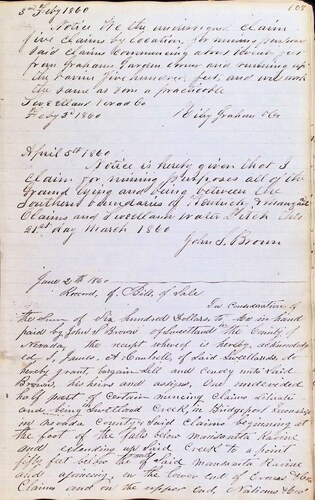 108
3rd Feby 1860
Notice We the undersigned claim
five claims by location, for mining purposes
said claims Commencing about three feet
from Grahams Garden corner and running up
the ravine five hundred feet, and will work
the same as soon a practicable
Sweetland Nevad Co
Feby 3d 1860 Wily Graham & Co
April 5th 1860
Notice is hereby given that I
Claim for mining purposes all of the
Ground lying and being between the
Southern boundaries of Kentucky &
Claims and Sweetland Water Ditch this
21st day March 1860
John S. Brown
June 2th 1860
Record, of Bill, of Sale
In Consideration of
the Sum of Six hundred Dollars, to me in hand
paid by John S Brown of Sweetland in the County of
Nevada, the receipt whereof is hereby acknowledg
ed I, James. A. of Said Sweetlands, do
hereby grant, bargain Sell and Convey unto Said
Brown, his heirs and assigns, One undivided
half part of Certain mineing Claims Situate
and being in Sweetland Creek, in Bridgeport Township
in Nevada County Said Claims beginning at
the foot of the falls below Manzanita Ravine
and extending up Said Creek to a point
fifty feet below the of Said Manzanita Ravine
and adjoining, on the lower end of
Claims and on the upper end,